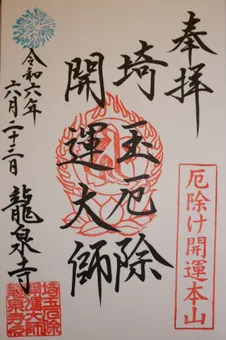 奉拝
埼玉厄除
開運大師
令和六年
六月二十二日
龍泉寺
厄除け開運本山
埼玉厄除
開運大師
龍泉寺